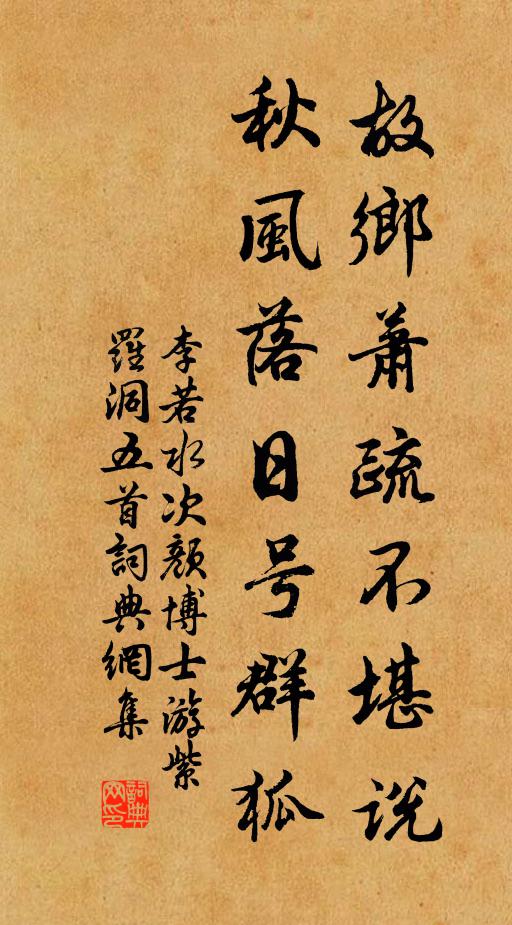 故鄉蕭疏不堪說
秋風落日号群狐
李若水次顏博士游紫
羅洞五首詞典網集
詞典
网印